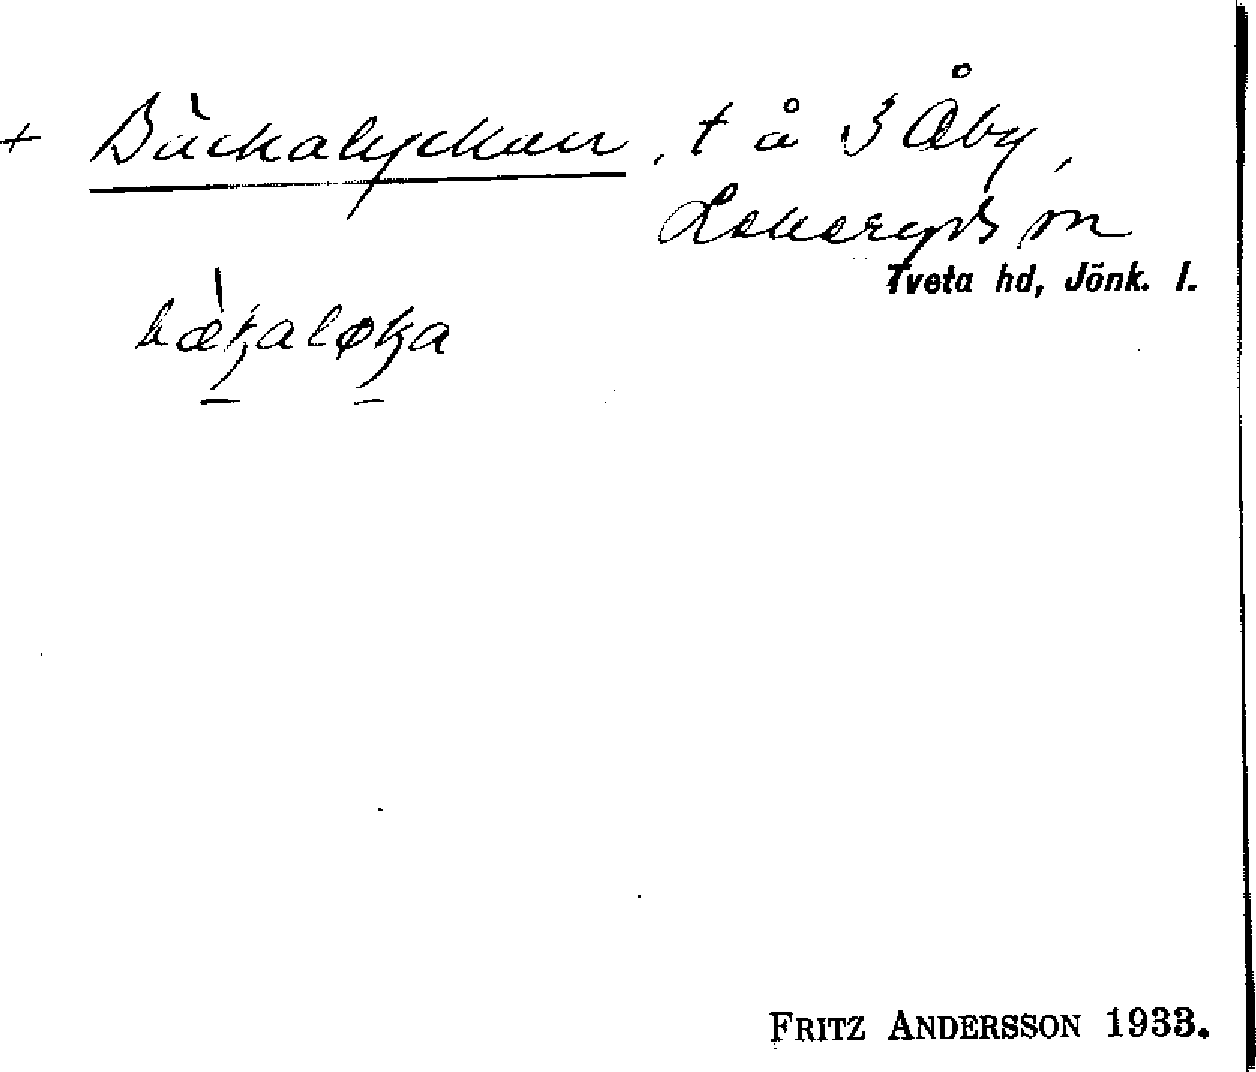 + Bäckalyckan, t å S Åby,
Lekeryds sn
Tveta hd, Jönk. l.
bækaløka
FRITZ ANDERSSON 1933.